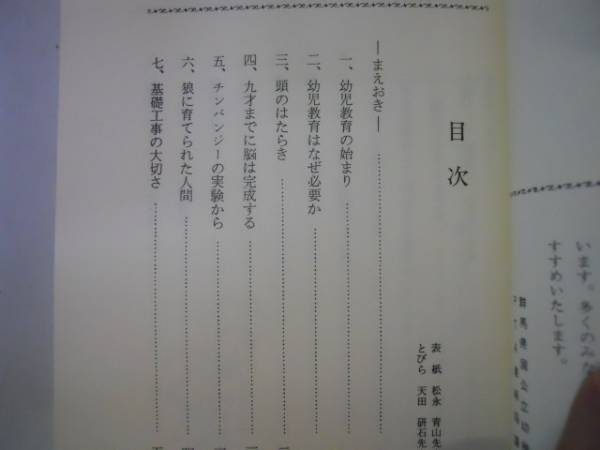 います。多くのみな
すすめいたします。
群馬県国公立幼
目次
表紙 松永 青山先
とびら 天田 研石先
―まえおき―
一、幼児教育の始まり
二、幼児教育はなぜ必要か
三、頭のはたらき
四、九才までに脳は完成する
五、チンパンジーの実験から
六、狼に育てられた人間
七、基礎工事の大切さ